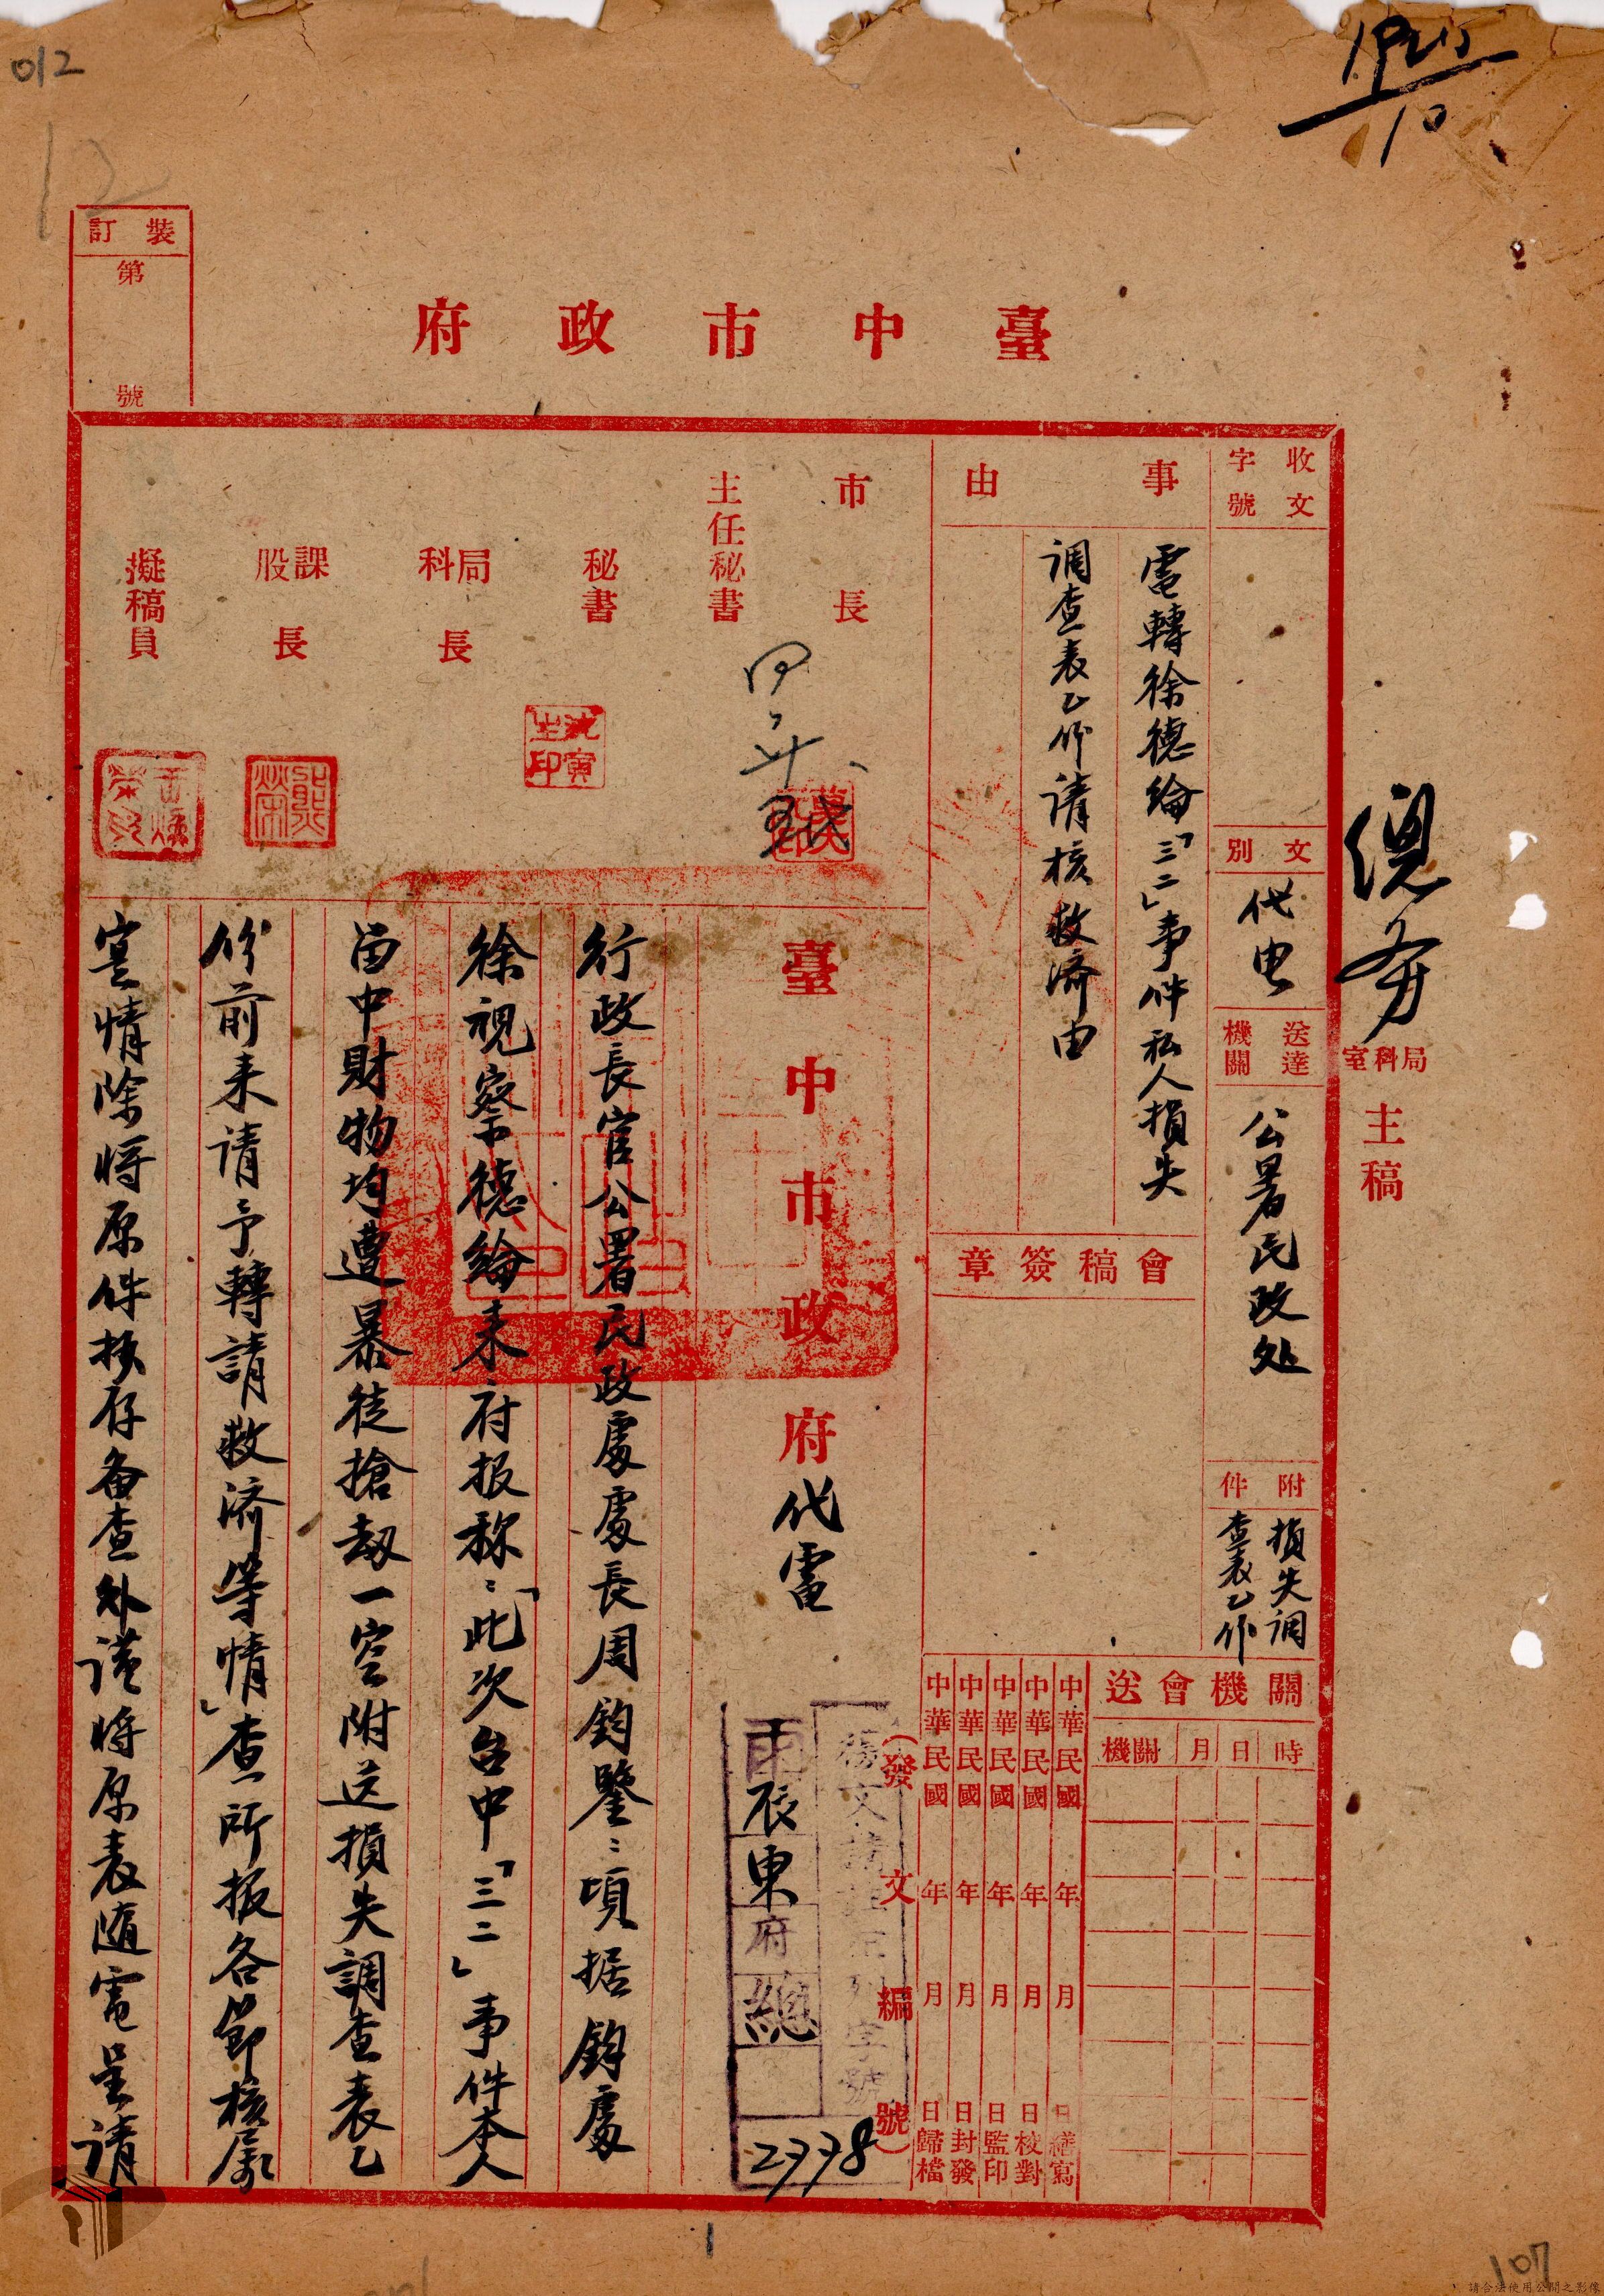 012
12
107
裝訂
第 號
臺中市政府
總務
局科室主稿
收文字號
文別
代电
送達機關
公署民政处
附件
損失調查表乙份
事由
電轉徐德綸「三二」事件私人損失
调查表乙份请核救济由
會稿簽章
關機會送
機關 月 日 時
中華民國 年 月 日繕寫
中華民國 年 月 日校對
中華民國 年 月 日監印
中華民國 年 月 日封發
中華民國 年 月 日歸檔
(發文編號)
市長
主任秘書
秘書
局科長
課股長
擬稿員
臺中市政府代電
府 總
2778
行政長官公署民政處處長周鈞鑒：頃据鈞處
徐視察德綸来府报称：「此次台中「三二」事件本人
留中財物均遭暴徒搶劫一空附送損失調查表乙
份前来请予轉請救济等情」查所报各節核属
寔情除将原件抄存备查外谨将原表随電呈请
請合法使用公開之影像